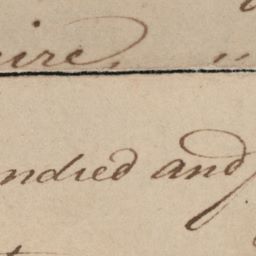 ire,
ndred and